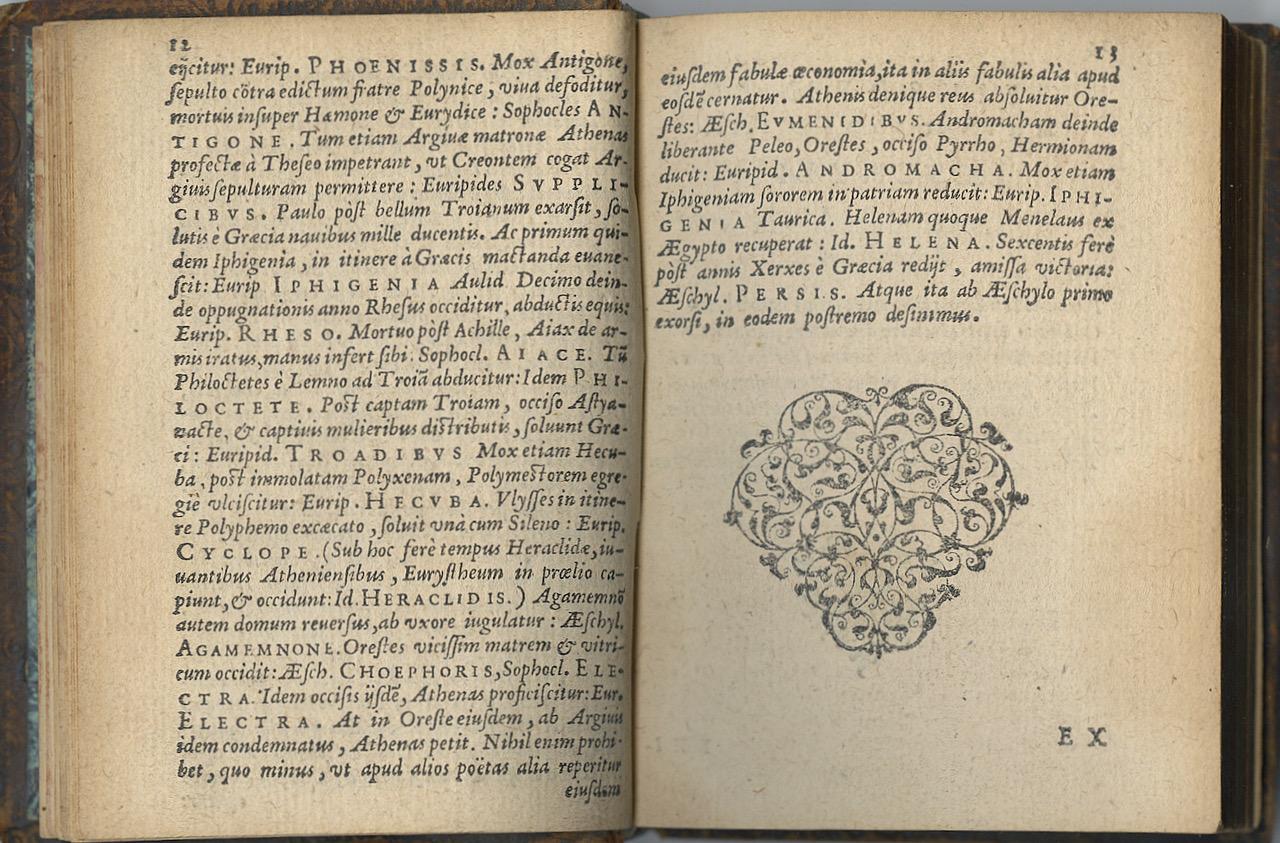 12
eijcitur: Eurip. PHOENISSIS. Mox Antigone,
ſepulto cõtra edictum fratre Polynice, viua defoditur,
mortuis inſuper Hæmone & Eurydice: Sophocles AN-
TIGONE. Tum etiam Argiuæ matronæ Athenas
profectæ à Theſeo impetrant, vt Creontem cogat Ar-
giuis ſepulturam permittere: Euripides SVPPLI-
CIBVS. Paulo pòſt bellum Troianum exarſit, ſo-
lutis è Græcia nauibus mille ducentis. Ac primum qui-
dem Iphigenia, in itinere à Græcis mactanda euane-
ſcit: Eurip IPHIGENIA Aulid. Decimo dein-
de oppugnationis anno Rheſus occiditur, abductis equis:
Eurip. RHESO. Mortuo pòſt Achille, Aiax de ar-
mis iratus, manus infert ſibi: Sophocl. AIACE. Tū
Philoctetes è Lemno ad Troiā abducitur: Idem PHI-
LOCTETE. Poſt captam Troiam, occiſo Aſtya-
nacte, & captiuis mulieribus diſtributis, ſoluunt Græ-
ci: Euripid. TROADIBVS Mox etiam Hecu-
ba, poſt immolatam Polyxenam, Polymeſtorem egre-
giè vlciſcitur: Eurip. HECVBA. Vlyſſes in itine-
re Polyphemo excæcato, ſoluit vnà cum Sileno: Eurip.
CYCLOPE. (Sub hoc ferè tempus Heraclidæ, iu-
uantibus Athenienſibus, Euryſtheum in prœlio ca-
piunt, & occidunt: Id. HERACLIDIS.) Agamemnõ
autem domum reuerſus, ab vxore iugulatur: Æſchyl.
AGAMEMNONE. Oreſtes viciſſim matrem & vitri-
cum occidit: Æſch. CHOEPHORIS, Sophocl. ELE-
CTRA. Idem occiſis ijſdē, Athenas proficiſcitur: Eur.
ELECTRA. At in Oreſte eiuſdem, ab Argiuis
idem condemnatus, Athenas petit. Nihil enim prohi-
bet, quo minus, vt apud alios poëtas alia reperitur
eiuſdem
13
eiuſdem fabulæ œconomia, ita in aliis fabulis alia apud
eoſdē cernatur. Athenis denique reus abſoluitur Ore-
ſtes: Æſch. EVMENIDIBVS. Andromacham deinde
liberante Peleo, Oreſtes, occiſo Pyrrho, Hermionam
ducit: Euripid. ANDROMACHA. Mox etiam
Iphigeniam ſororem in patriam reducit: Eurip. IPHI-
GENIA Taurica. Helenam quoque Menelaus ex
Ægypto recuperat: Id. HELENA. Sexcentis ferè
pòſt annis Xerxes è Græcia redijt, amiſſa victoria:
Æſchyl. PERSIS. Atque ita ab Æſchylo primo
exorſi, in eodem poſtremo deſinimus.
EX